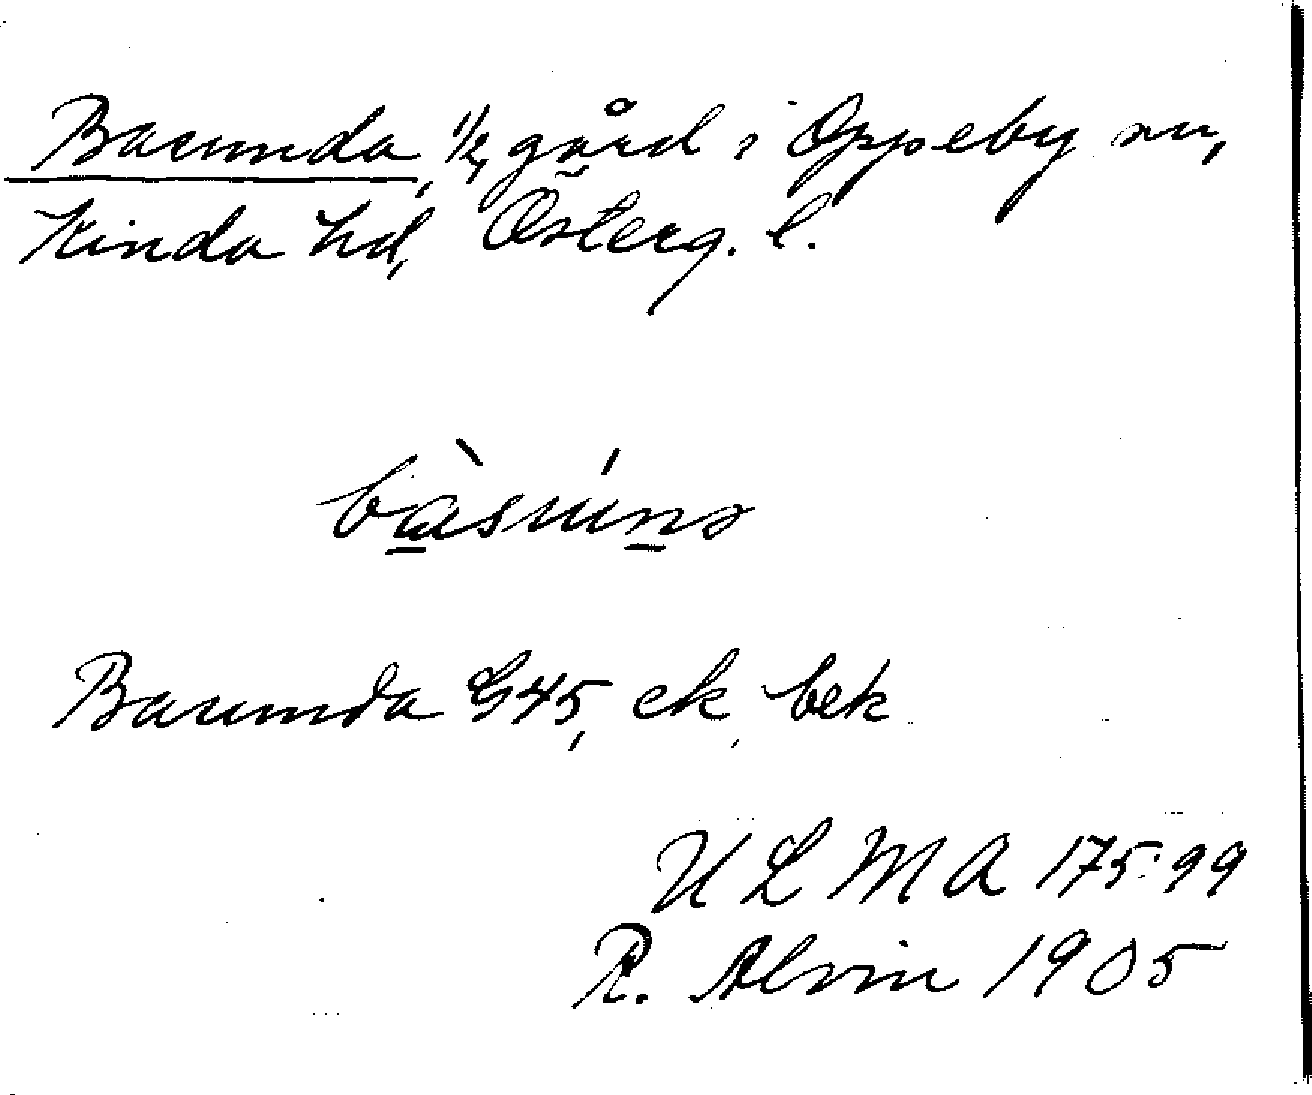 Basunda, 1/2 gård i Oppeby sn,
Kinda hd, Österg. l.
bàsúnə
Basunda G45, ek, bek
ULMA 175:99
R. Alvin 1905